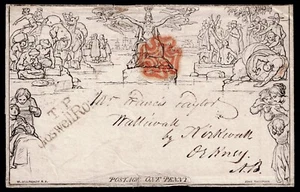 T.P
Roswell Rd
Mr Francis Taylor
by Kirkwall
Orkney
N.B
POSTAGE ONE PENNY.